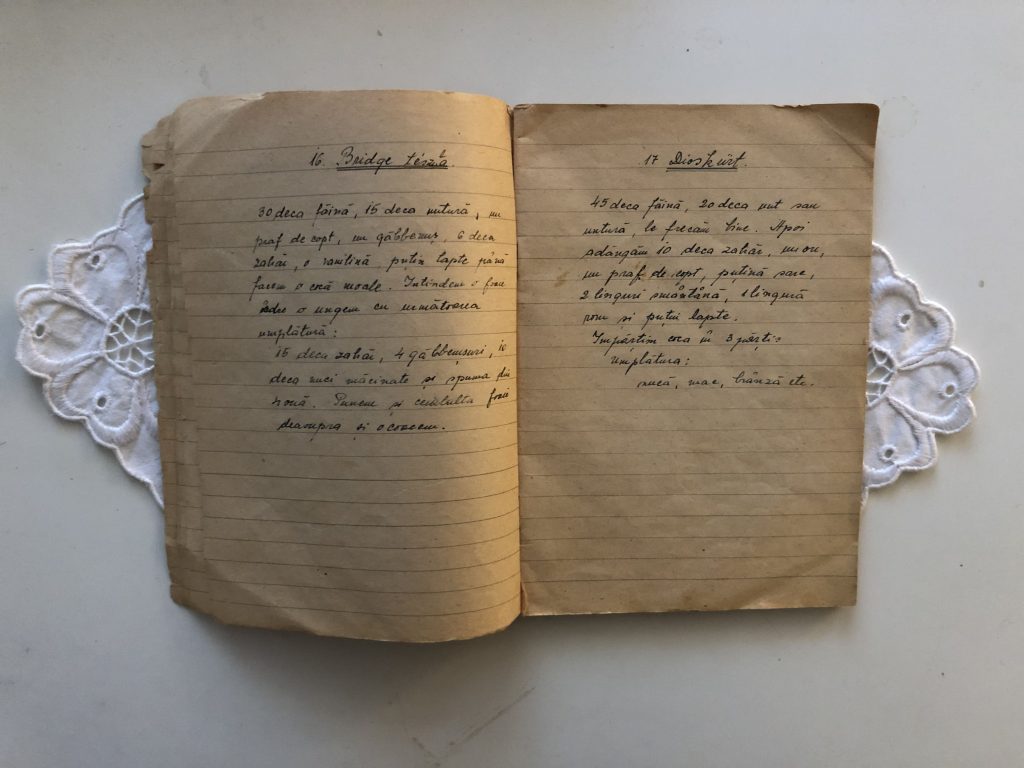 16. Bridge tészta.
30 deca făină, 15 deca untură, un
praf de copt, un gălbbenuș, 6 deca
zahăr, o vanilină, puțin lapte până
facem o cocă moale. Întindem o foaie
o ungem cu următoarea
umplătură:
15 deca zahăr, 4 gălbbenusuri, 10
deca nuci măcinate și spuma din
nouă. Punem și cealalta foaie
deasupra și o coacem.
17 Dioskürt.
45 deca făină, 20 deca unt sau
untură, le frecăm bine. Apoi
adăugăm 10 deca zahăr, un ou,
un praf de copt, puțină sare,
2 linguri smântână, 1 lingură
rom și puțin lapte.
Împărțim coca în 3 părți:
Umplătura:
nucă, mac, brânză etc.